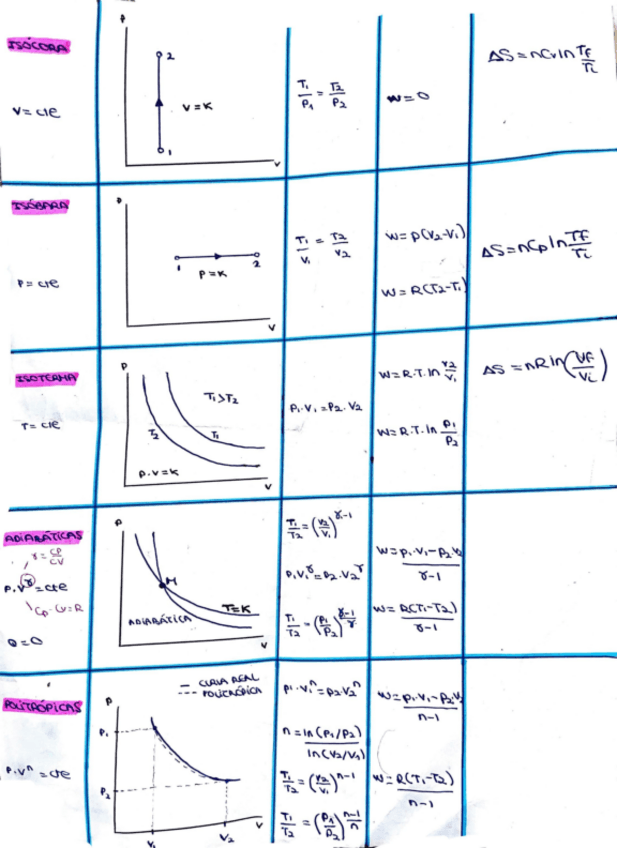 ISÓCORA
V = cte
P
2
V = K
1
V
T₁/P₁ = T₂/P₂
W = 0
ΔS = nCv ln Tf/Ti
ISÓBARA
P = cte
P
1
2
P = K
V
T₁/V₁ = T₂/V₂
W = P(V₂-V₁)
W = R(T₂-T₁)
ΔS = nCp ln Tf/Ti
ISOTERMA
T = cte
P
T₁ > T₂
T₂
T₁
P.V = K
V
P₁.V₁ = P₂.V₂
W = R.T.ln V₂/V₁
W = R.T.ln P₁/P₂
ΔS = nR ln (Vf/Vi)
ADIABÁTICAS
γ = CP/CV
P.V^γ = cte
Cp - CV = R
Q = 0
P
M
T = K
ADIABÁTICA
V
T₁/T₂ = (V₂/V₁)^γ-1
P₁V₁^γ = P₂.V₂^γ
T₁/T₂ = (P₁/P₂)^γ-1/γ
W = P₁.V₁ - P₂V₂/γ-1
W = R(T₁-T₂)/γ-1
POLITRÓPICAS
P.V^n = cte
CURVA REAL
POLITRÓPICA
P
P₁
P₂
V₁
V₂
V
P₁.V₁^n = P₂V₂^n
n = ln(P₁/P₂)/ln(V₂/V₁)
T₁/T₂ = (V₂/V₁)^n-1
T₁/T₂ = (P₁/P₂)^n-1/n
W = P₁.V₁ - P₂.V₂/n-1
W = R(T₁-T₂)/n-1